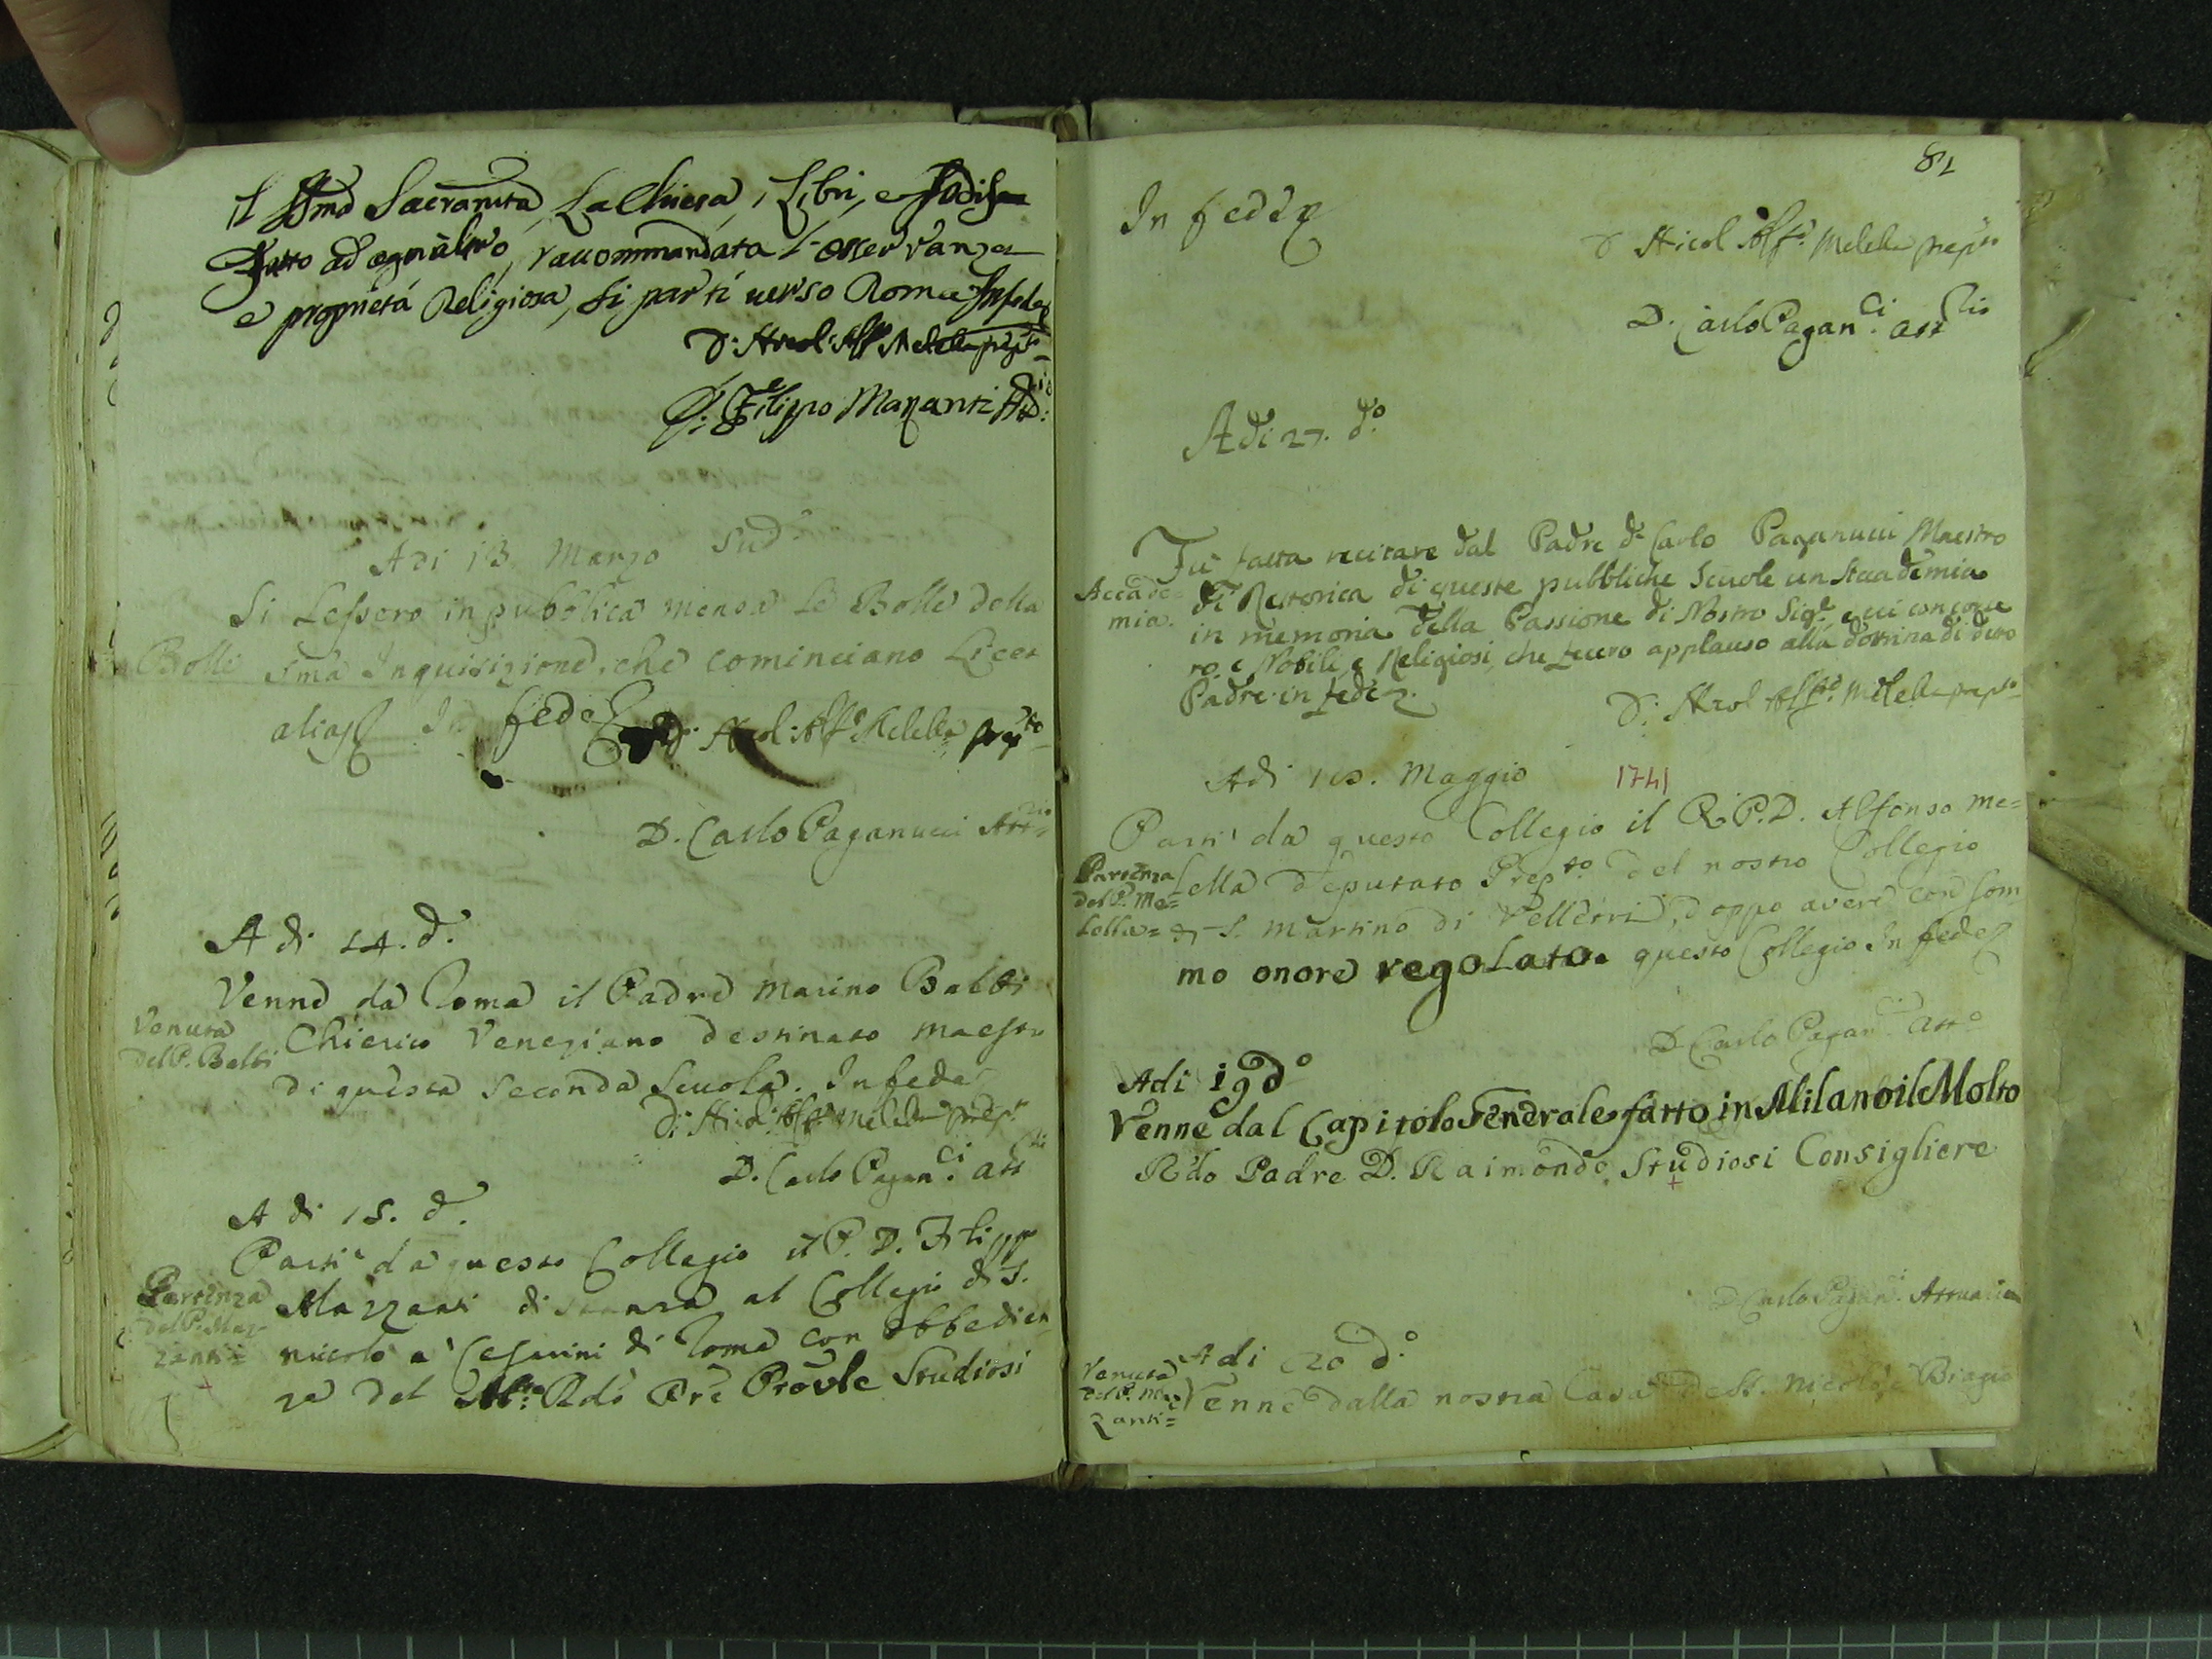 il SSmo Sacramto, La Chiesa, i Libri, e sodisfa
tto ad ognuno, raccommandata l'osservanza
e proprietá Religiosa, si partí verso Roma In fede
D. Nicol: Alfo Melella prepto
D. Filippo Mazanti Atto:
Adi 13 Marzo sudo
Si Lessero in pubblica mensa le Bolle della
Bolle
Sma Inquisizione, che cominciano Licet
alias In fede
D. Nicol: Alfo Melella prepto
D. Carlo Paganucci Attrio
A di 14. do.
Venne da Roma il Padre Marino Balbi
Venuta
del P. Balbi
Chierico Veneziano destinato maestro
di questa seconda Scuola. In fede
D. Nicol: Alfo Melella prepto
D. Carlo Paganci. attrio
A di 15. do.
Parti da questo Collegio il P. D. Filippo
Partenza
del P. Maz-
zanti=
Mazzanti di stanza al Collegio di S.
Nicolo a' Cesarini di Roma con obbedien
za del Mto. Rdo Pre Provle Studiosi
82
In fede
D Nicol Alfo. Melella prepto
D. Carlo Paganci. attrio
Adi 27. do.
Fu' fatta recitare dal Padre D. Carlo Paganucci Maestro
Accade=
mia.
di Rettorica di queste pubbliche Scuole un Accademia
in memoria della Passione di Nostro Sigre, e vi concorse
ro, e Nobili, e Religiosi, che fecero applauso alla dottrina di detto
Padre. in fede
D. Nicol Alfo. Melella prepto
Adi 10. Maggio 1741
Parti' da questo Collegio il R. P. D. Alfonso Me=
Partenza
del P. Me=
lella=
lella deputato Prepto. del nostro Collegio
di S. Martino di Velletri, doppo avere con som
mo onore regolato questo Collegio In fede
D. Carlo Paganci. atto
Adi 19 do
Venne dal Capitolo Generale fatto in Milano il Molto
Rdo Padre D. Raimondo Studiosi Consigliere
D. Carlo Paganci. Attuario
Adi 20 do
Venuta
del P. Maz
zanti=
Venne dalla nostra Casa de SS. Nicolo, e Biagio